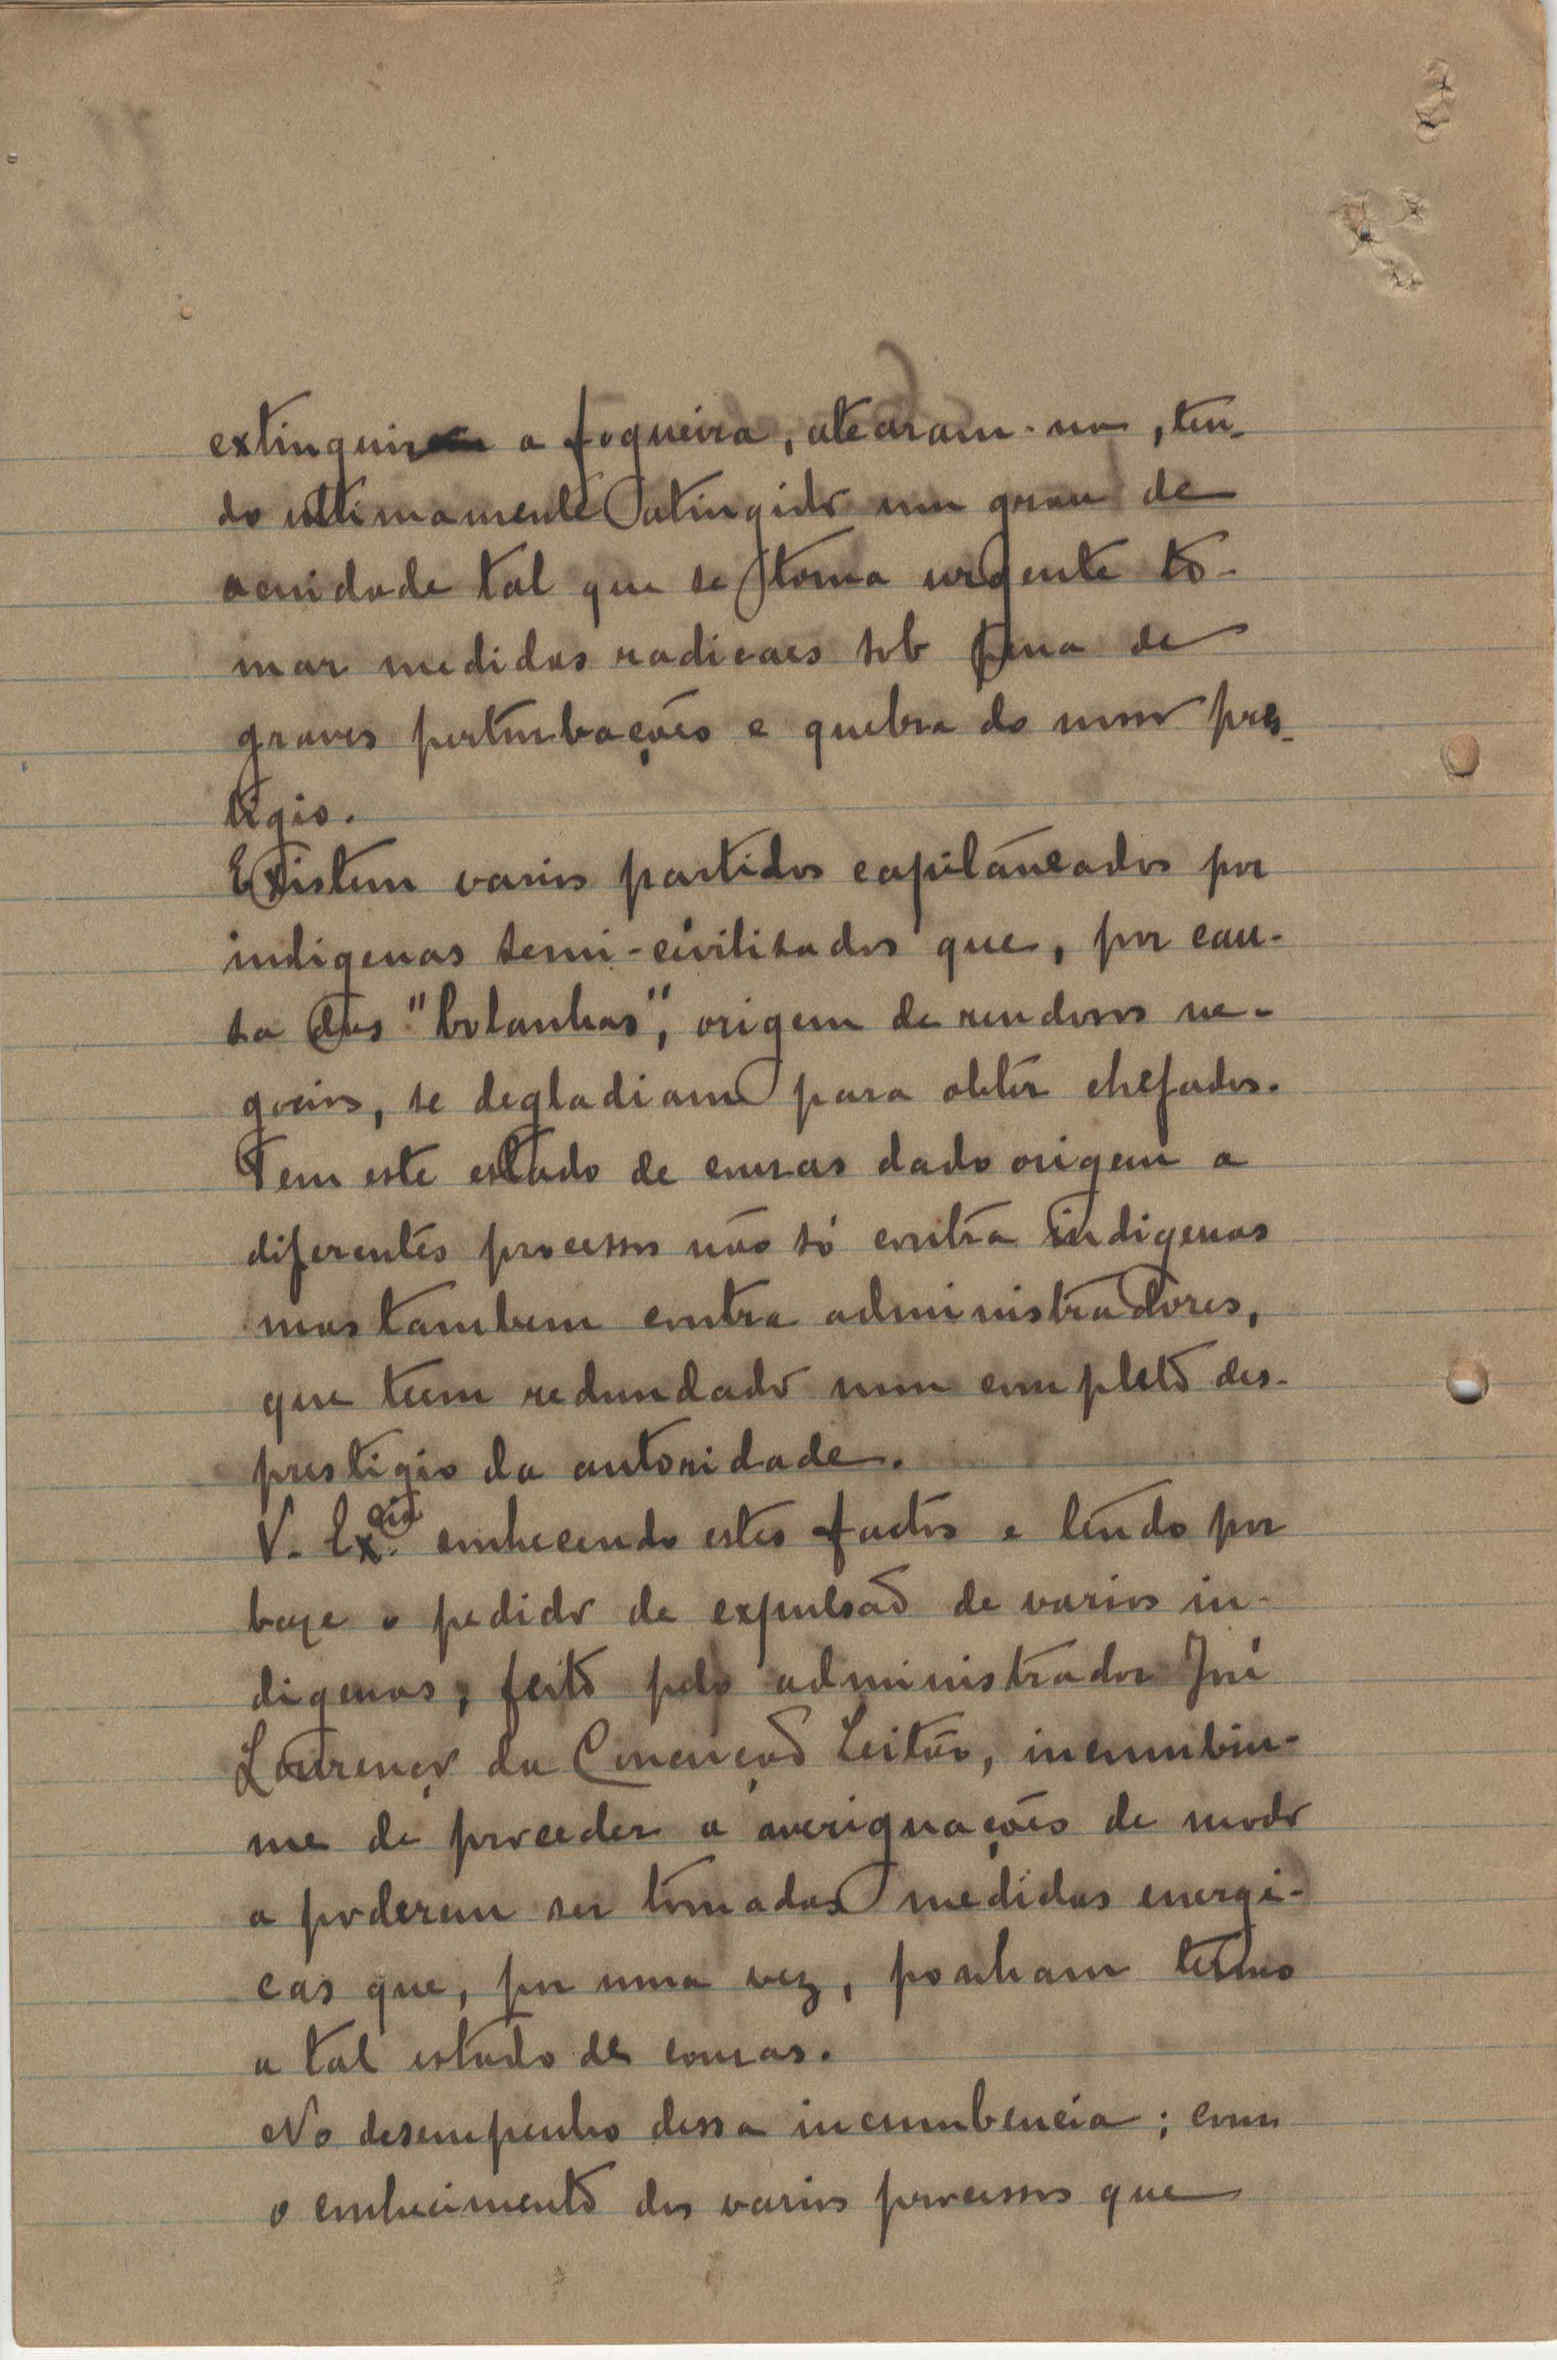 extinguir a fogueira, atearam-na, ten-
do ultimamente atingido um grau de
acuidade tal que se torna urgente to-
mar medidas radicaes sob pena de
graves perturbações e quebra do nosso pres-
tigio.
Existem varios partidos capitaneados por
indigenas semi-civilisados que, por cau-
sa das "bolanhas", origem de rendosos ne-
gocios, se degladiam para obter chefados.
Tem este estado de cousas dado origem a
diferentes processos não só contra indigenas
mas tambem contra administradores,
que teem redundado num completo des-
prestigio da autoridade.
V. Ex.cia conhecendo estes factos e tendo por
base o pedido de expulsão de varios in-
digenas, feito pelo administrador José
Lourenço da Conceição Leitão, incumbiu-
me de proceder a averiguações de modo
a poderem ser tomadas medidas energi-
cas que, por uma vez, ponham termo
a tal estado de cousas.
No desempenho dessa incumbencia; com
o conhecimento dos varios processos que